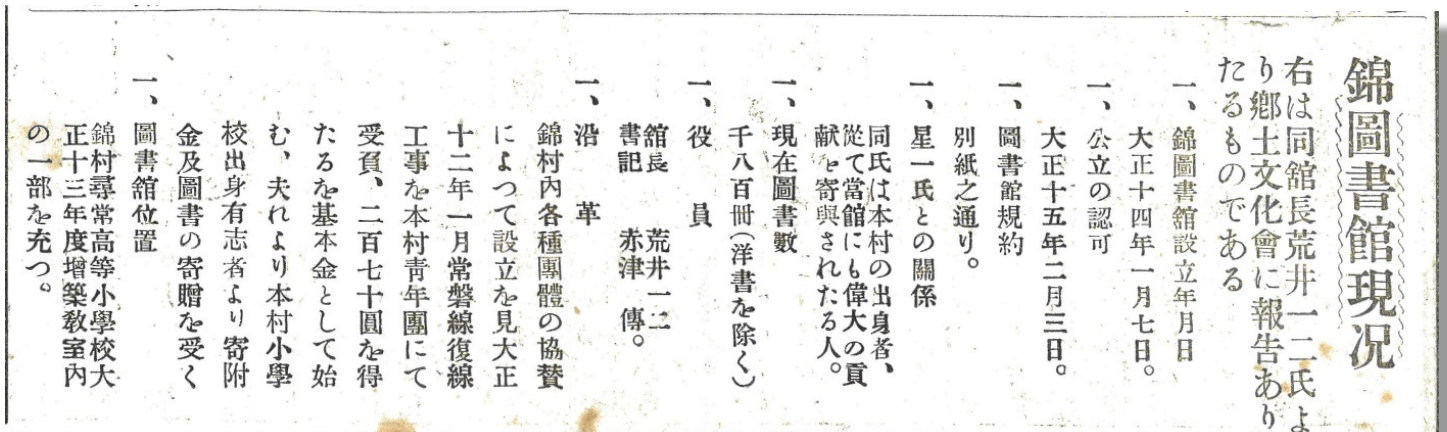 錦圖書館現況
右は同舘長荒井一二氏よ
り鄕土文化會に報告あり
たるものである
一、錦圖書舘設立年月日
大正十四年一月七日。
一、公立の認可
大正十五年二月三日。
一、圖書館規約
別紙之通り。
一、星一氏との關係
同氏は本村の出身者、
從て當館にも偉大の貢
献を寄與されたる人。
一、現在圖書數
千八百冊(洋書を除く)
一、役員
舘長 荒井一二
書記 赤津傳。
一、沿革
錦村內各種團體の協賛
によつて設立を見大正
十二年一月常磐線復線
工事を本村靑年團にて
受負、二百七十圓を得
たるを基本金として始
む、夫れより本村小學
校出身有志者より寄附
金及圖書の寄贈を受く
一、圖書舘位置
錦村尋常高等小學校大
正十三年度增築敎室內
の一部を充つ。